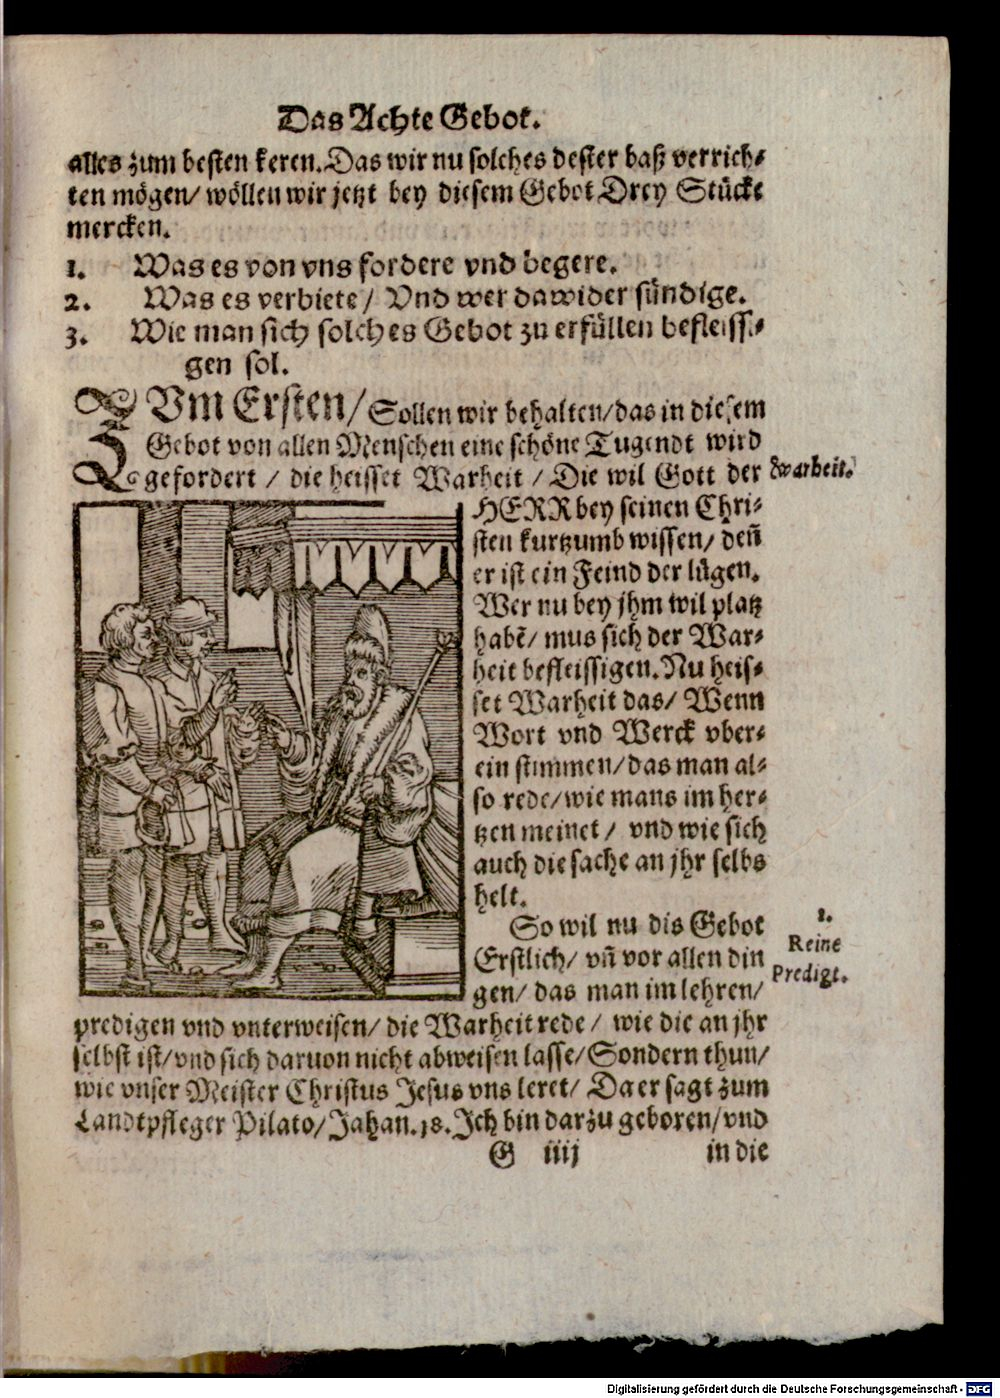 Das Achte Gebot.
alles zum besten keren. Das wir nu solches dester baß verrich-
ten mögen/ wöllen wir jetzt bey diesem Gebot Drey Stücke
mercken.
1. Was es von vns fordere vnd begere.
2. Was es verbiete/ Vnd wer dawider sündige.
3. Wie man sich solches Gebot zu erfüllen befleissi-
gen sol.
ZVm Ersten/ Sollen wir behalten/ das in diesem
Gebot von allen Menschen eine schöne Tugendt wird
gefordert / die heisset Warheit / Die wil Gott der
Warheit.
HERR bey seinen Chri-
sten kurtzumb wissen/ deñ
er ist ein Feind der lügen.
Wer nu bey jhm wil platz
habẽ/ mus sich der War-
heit befleissigen. Nu heis-
set Warheit das/ Wenn
Wort vnd Werck vber-
ein stimmen/ das man al-
so rede/ wie mans im her-
tzen meinet / vnd wie sich
auch die sache an jhr selbs
helt.
So wil nu dis Gebot
Erstlich/ vñ vor allen din
gen/ das man im lehren/
1.
Reine
Predigt.
predigen vnd vnterweisen/ die Warheit rede / wie die an jhr
selbst ist/ vnd sich daruon nicht abweisen lasse/ Sondern thun/
wie vnser Meister Christus Jesus vns leret/ Da er sagt zum
Landtpfleger Pilato/ Jahan. 18. Ich bin darzu geboren/ vnd
G iiij in die
Digitalisierung gefördert durch die Deutsche Forschungsgemeinschaft - DFG